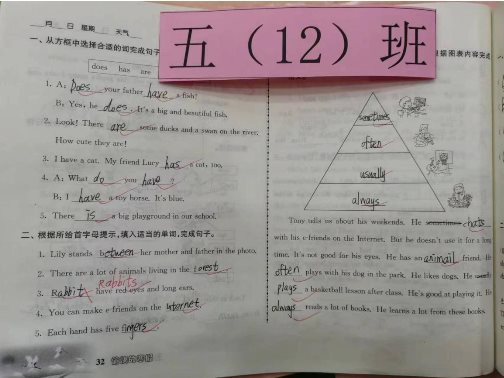 月 日 星期 天气
五（12）班
一、从方框中选择合适的词完成句子
does has are
根据图表内容完成
1. A: Does your father have a fish?
B: Yes, he does. It's a big and beautiful fish.
2. Look! There are some ducks and a swan on the river.
How cute they are!
3. I have a cat. My friend Lucy has a cat, too.
4. A: What do you have?
B: I have a toy horse. It's blue.
5. There is a big playground in our school.
二、根据所给首字母提示，填入适当的单词，完成句子。
1. Lily stands between her mother and father in the photo.
2. There are a lot of animals living in the forest.
3. Rabbit Rabbits have red eyes and long ears.
4. You can make e-friends on the Internet.
5. Each hand has five fingers.
32
sometimes
often
usually
always
Tony tells us about his weekends. He sometimes chats
with his e-friends on the Internet. But he doesn't use it for a long
time. It's not good for his eyes. He has an animail friend. He
often plays with his dog in the park. He likes dogs. He
plays a basketball lesson after class. He's good at playing it. He
always reads a lot of books. He learns a lot from these books.